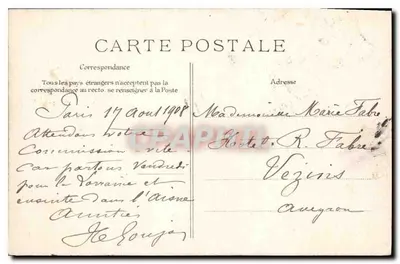 CARTE POSTALE
Correspondance
Tous les pays étrangers n'acceptent pas la
correspondance au recto se renseigner à la Poste
Adresse
Paris 17 Aout 1908
Attendons votre
Commission vite
car partons Vendredi
pour la Lorraine et
ensuite dans l'Aisne
Amitiés
Mademoiselle Marie Fabre
R. Fabre
Vezins
Aveyron